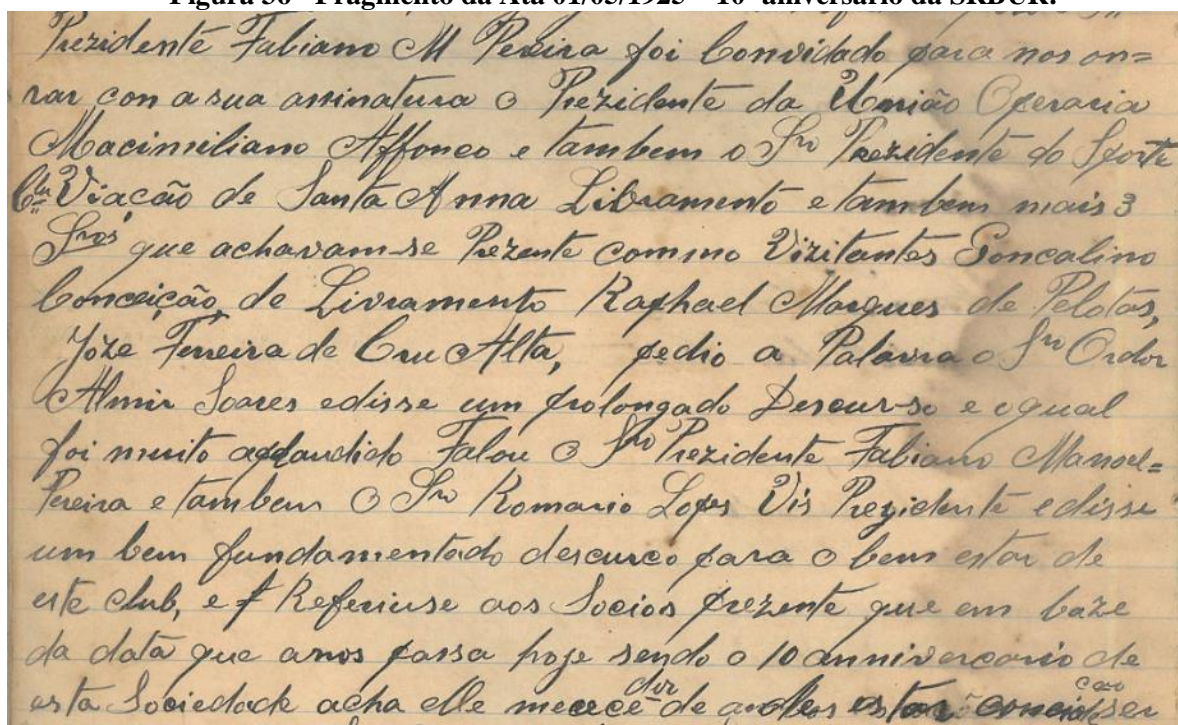 Figura 36 - Fragmento da Ata 01/05/1925 – 10º aniversário da SRBUR.
Prezidente Fabiano M Pereira foi Convidado para nos on=
rar con a sua assinatura o Prezidente da União Operaria
Macimiliano Affonco e tambem o Snr Prezidente do Sporte
Clu Viacão de Santa Anna Libramento e tambem mais 3
Snros que achavam-se Prezente commo Vizitantes Goncalino
Conceição, de Livramento Raphael Marques de Pelotas,
Jôze Ferreira de Cru Alta, pedio a Palavra o Snr Orador
Almir Soares edisse um prolongado Descurso e oqual
foi muito applaudido Falou o Snr Prezidente Fabiano Manoel=
Pereira e tambem O Snr Romario Lopes Vis Prezidente edisse
um bem fundamentado descurco para o bem estar de
este club, e Referiuse aos Socios prezente que em baze
da data que anos passa hoje sendo o 10 anniverçario de
esta Sociedade acha elle mececê dor de